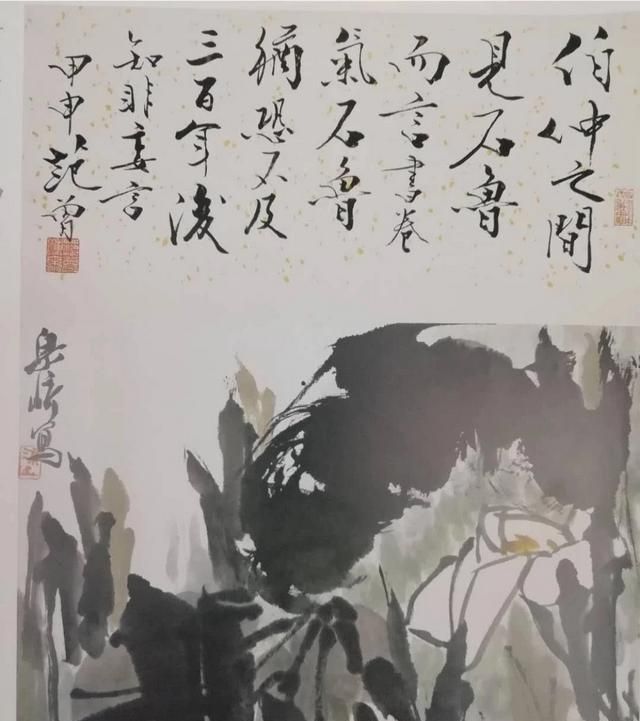 伯仲之間
見石魯
而言書卷
氣石魯
猶恐不及
三百年後
知非妄言
甲申范曾
寫